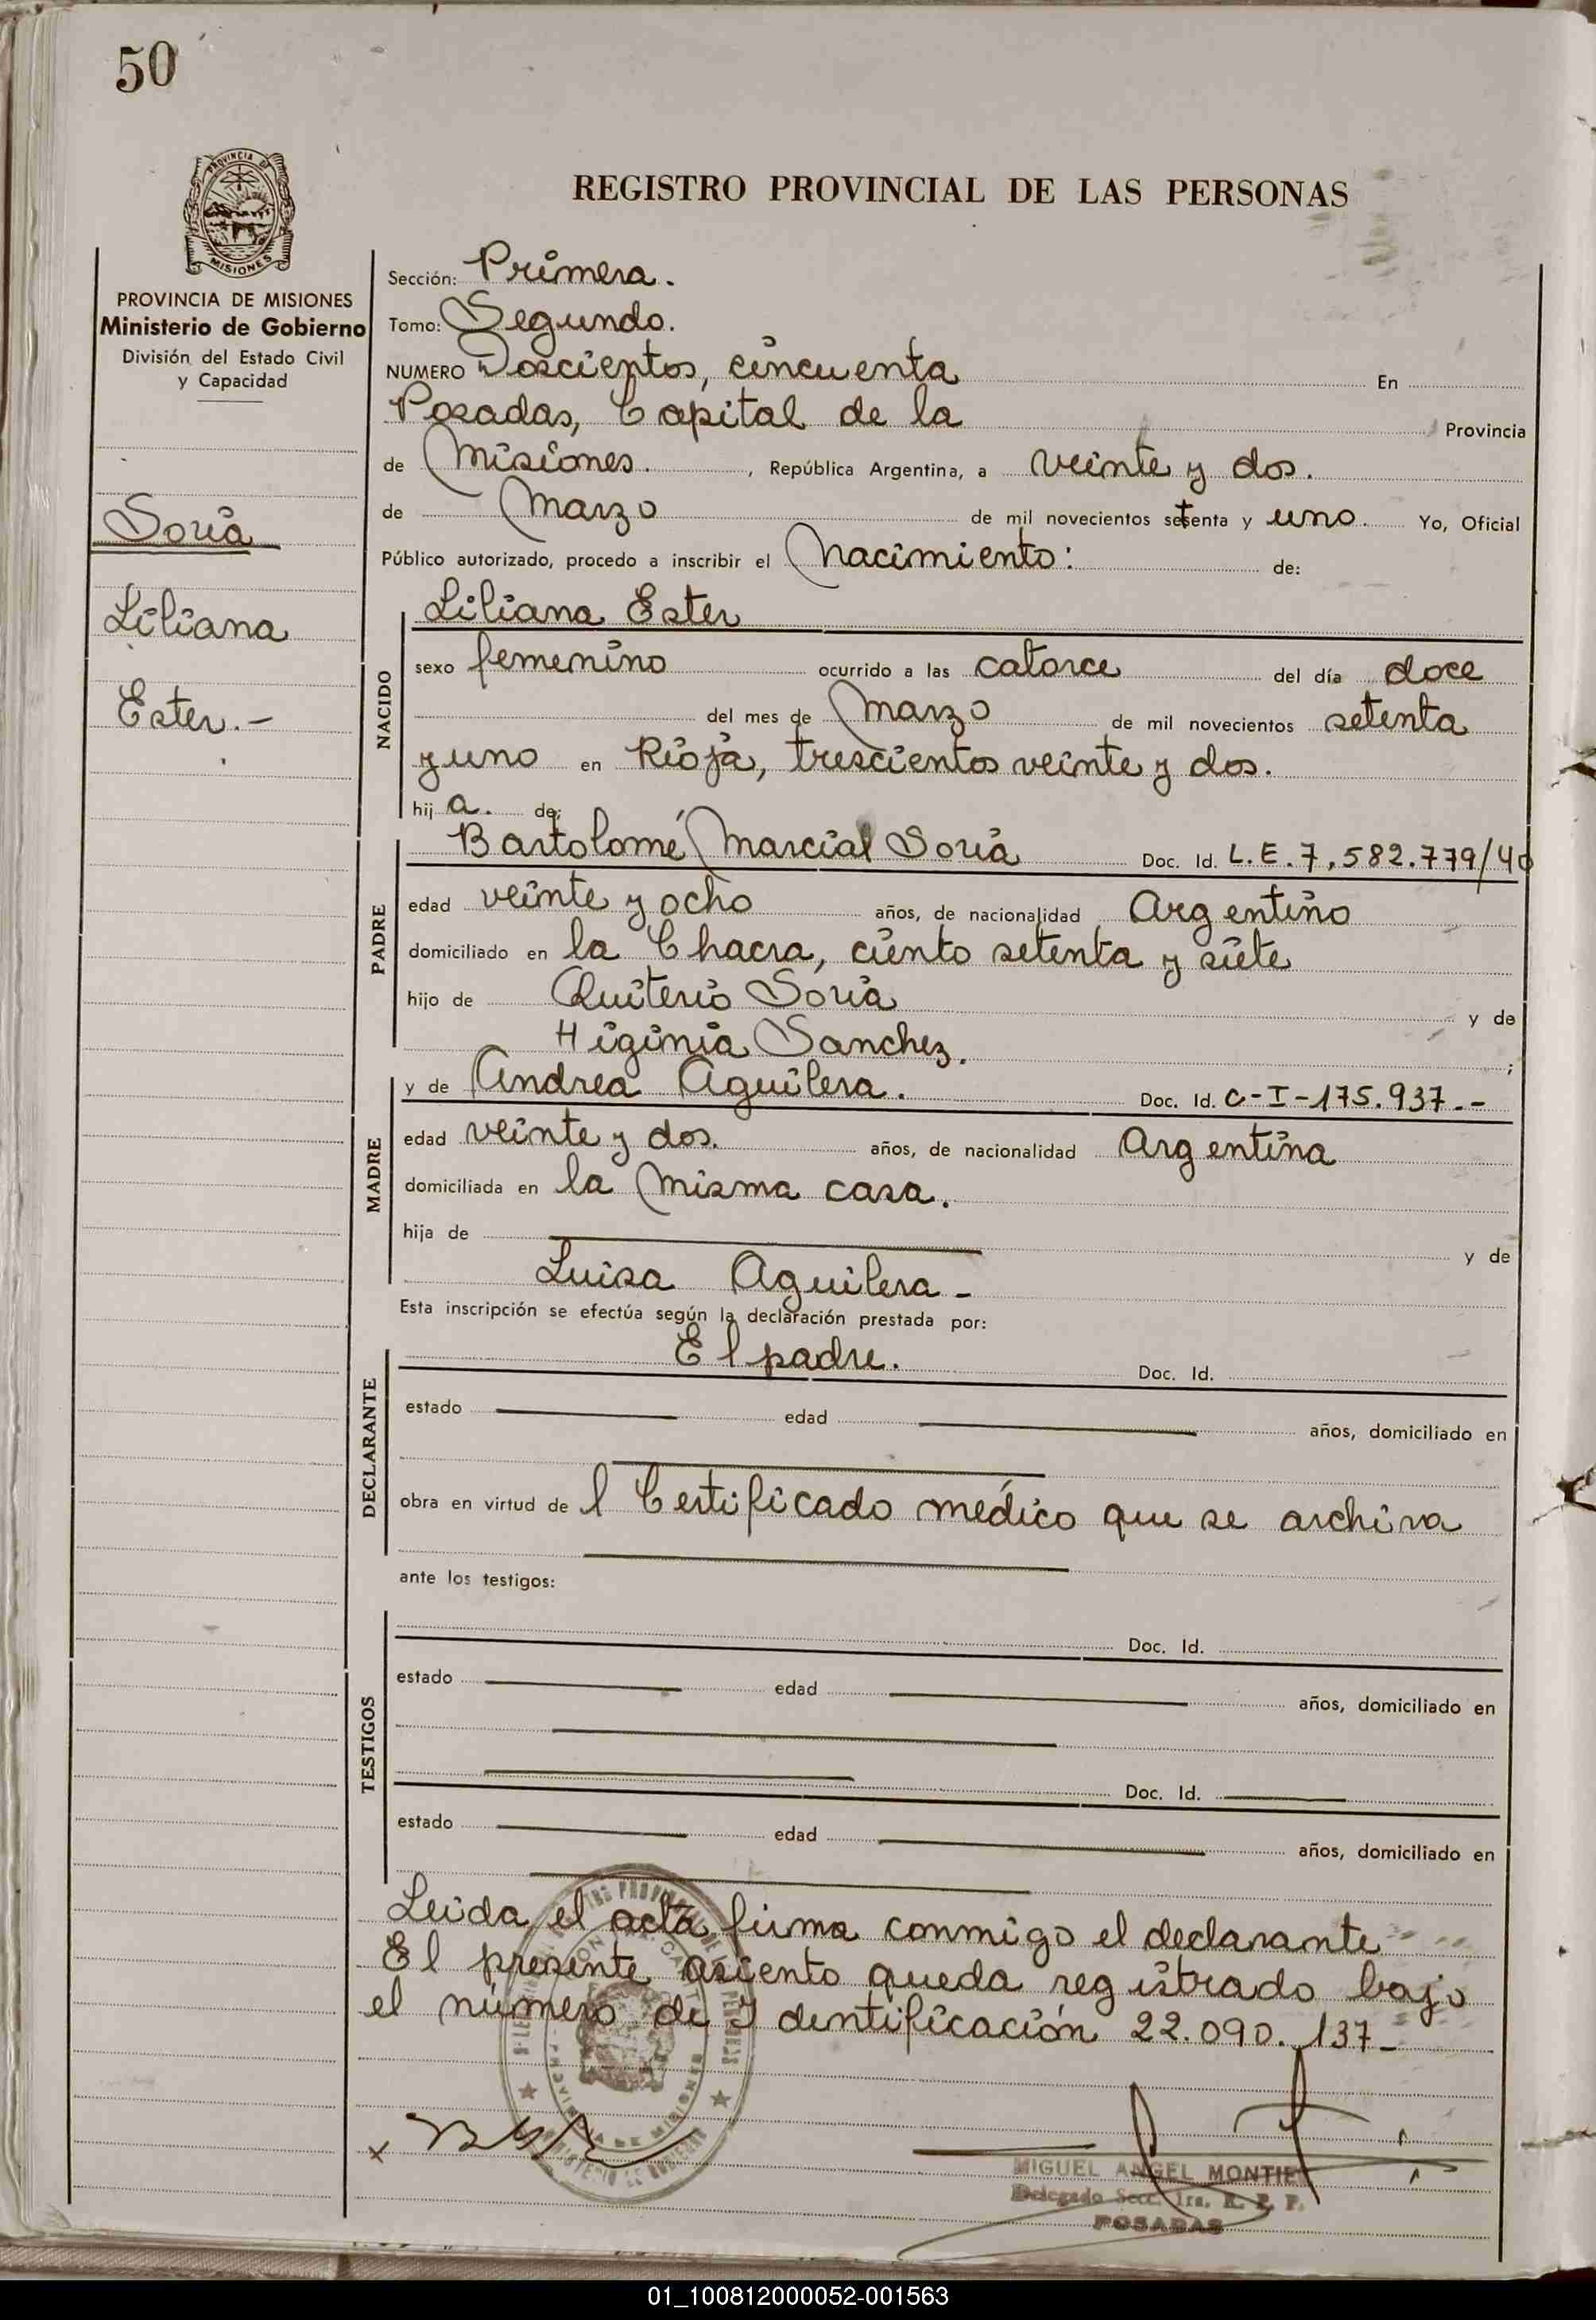 50
PROVINCIA DE
MISIONES
REGISTRO PROVINCIAL DE LAS PERSONAS
PROVINCIA DE MISIONES
Ministerio de Gobierno
División del Estado Civil
y Capacidad
Soria
Liliana
Ester.-
Sección: Primera.
Tomo: Segundo.
NUMERO Doscientos, cincuenta En
Posadas, Capital de la Provincia
de Misiones. , República Argentina, a veinte y dos.
de Marzo de mil novecientos setenta y uno. Yo, Oficial
Público autorizado, procedo a inscribir el Nacimiento: de:
NACIDO
Liliana Ester
sexo femenino ocurrido a las catorce del día doce
del mes de Marzo de mil novecientos setenta
y uno en Rioja, trescientos veinte y dos.
hij a. de:
PADRE
Bartolomé Marcial Soria Doc. Id. L.E. 7.582.779/40
edad veinte y ocho años, de nacionalidad Argentino
domiciliado en la Chacra, ciento setenta y siete
hijo de Quiterio Soria y de
Higinia Sanchez. ;
MADRE
y de Andrea Aguilera. Doc. Id. C-I-175.937.-
edad veinte y dos. años, de nacionalidad Argentina
domiciliada en la misma casa.
hija de y de
Luisa Aguilera-
Esta inscripción se efectúa según la declaración prestada por:
DECLARANTE
El padre. Doc. Id.
estado edad años, domiciliado en
obra en virtud de l Certificado médico que se archiva
ante los testigos:
TESTIGOS
Doc. Id.
estado edad años, domiciliado en
Doc. Id.
estado edad años, domiciliado en
Leida, el acta, firma conmigo el declarante
El presente asiento queda registrado bajo
el número de Identificación 22.090.137-
MIGUEL ANGEL MONTIEL
Delegado Secc. 1ra. R. P. P.
POSADAS
01_100812000052-001563